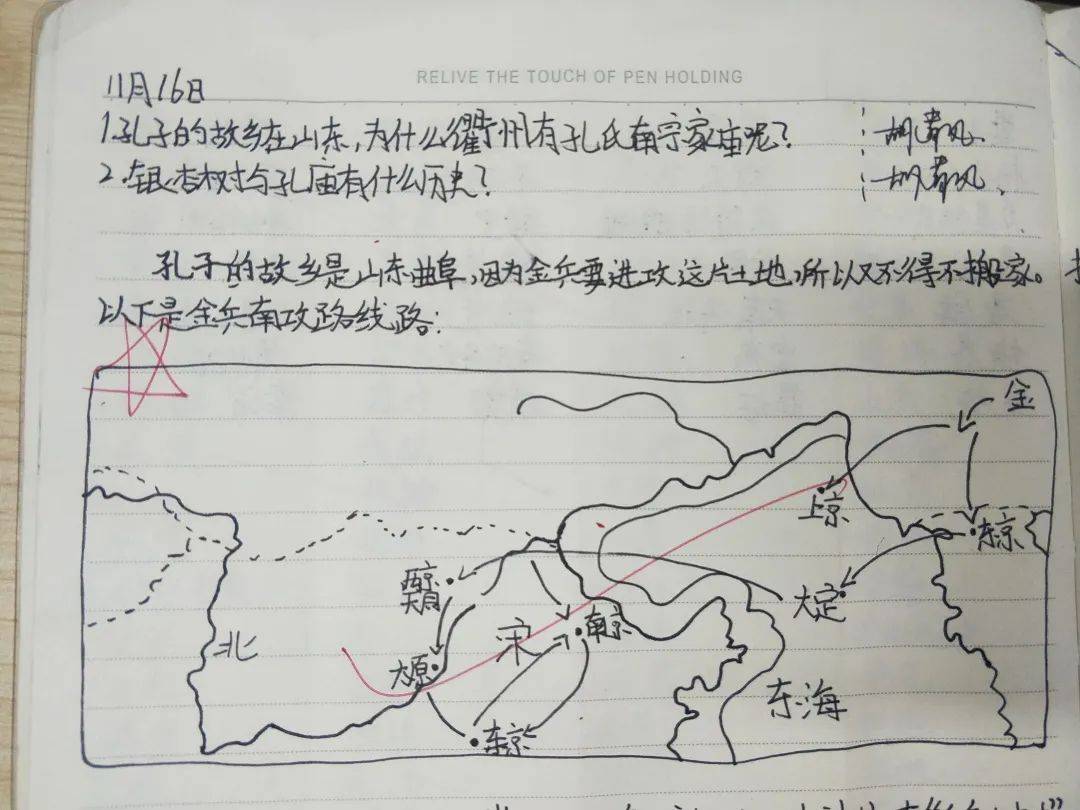 RELIVE THE TOUCH OF PEN HOLDING
11月16日
1.孔子的故乡在山东,为什么衢州有孔氏南宗家庙呢?
2.银杏树与孔庙有什么历史?
孔子的故乡是山东曲阜,因为金兵要进攻这片土地,所以又不得不搬家。
以下是金兵南攻路线路:
金
上京
东京
大定
南京
宋
太原
北
东海
东京